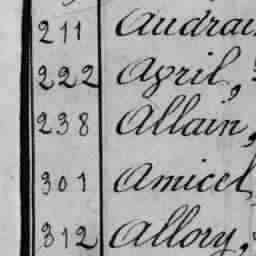 211 Audrai
222 April,
238 Allain,
301 Amicel
312 Allory,